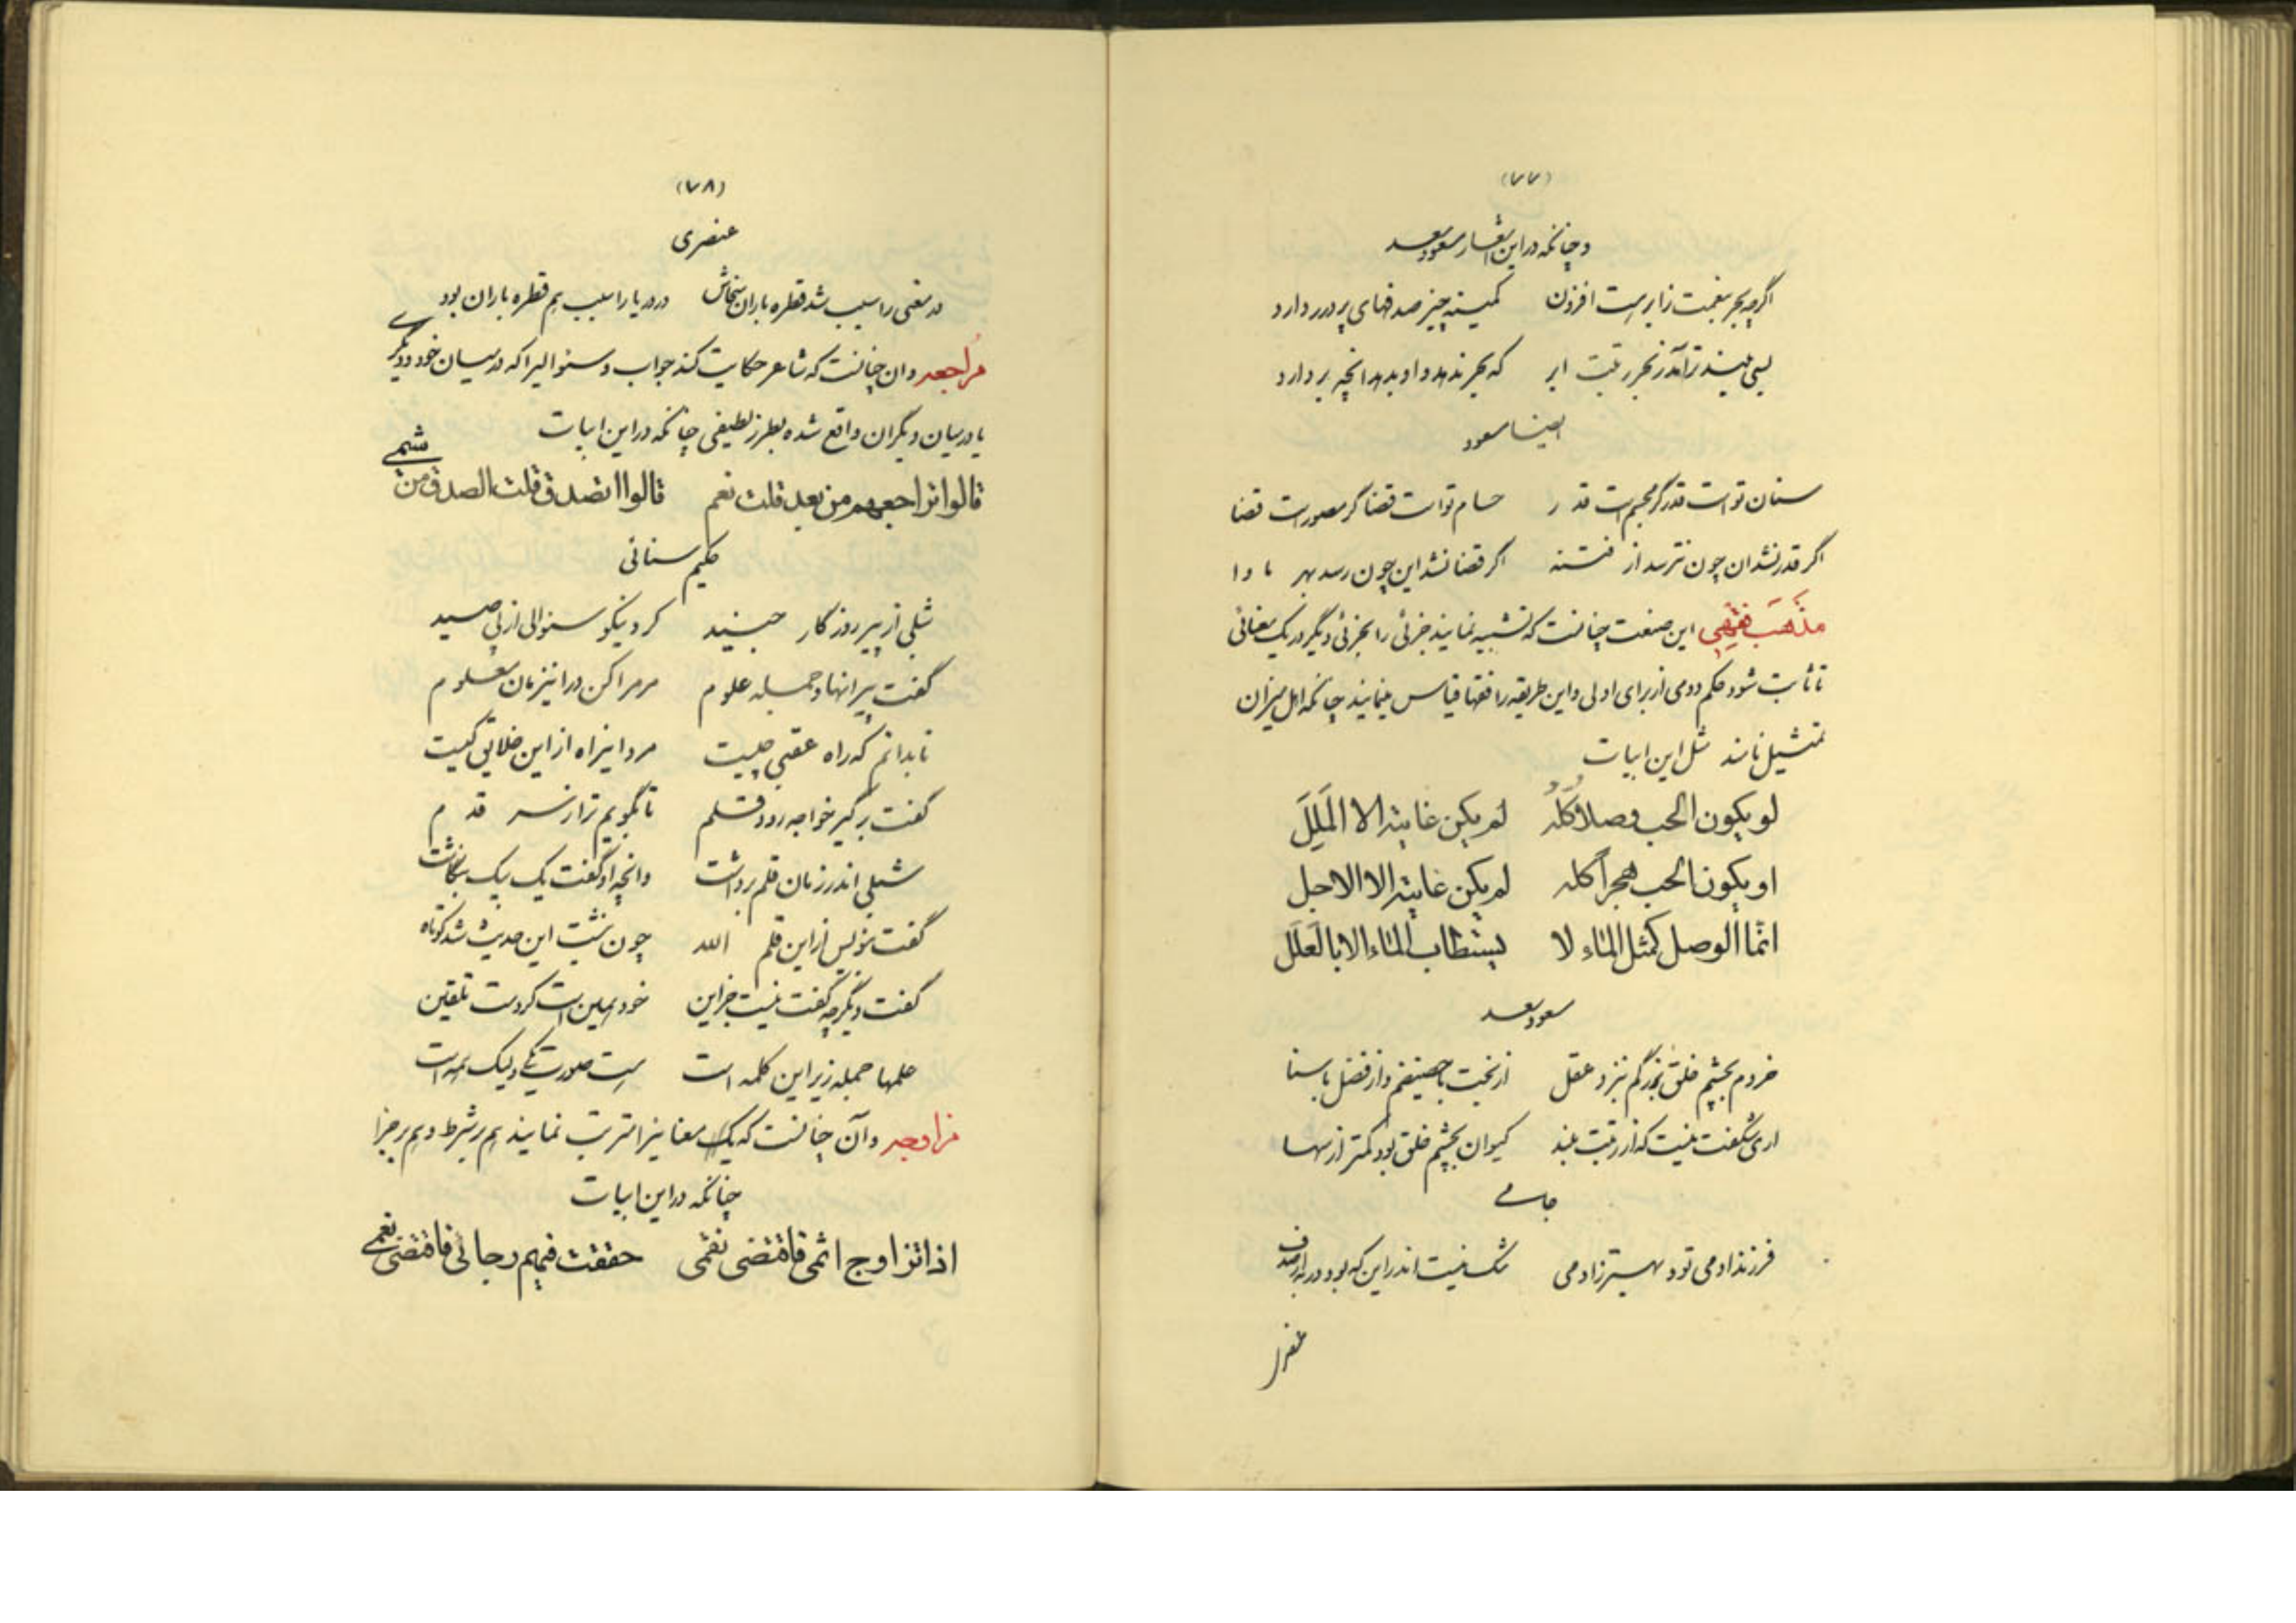 (۷۷)
وچنانکه در این اشعار مسعود سعد
اگرچه بحر بقیمت زابر هست افزون کمینه چیز صدفهای پر درر دارد
بسی بلندتر آمد ز بحر رتبت ابر که بحر ندهد و او بدهد انچه بر دارد
ایضا مسعود
سنان تو است قدر گر مجسم است قدر حسام تو است قضا گر مصور است قضا
اگر قدر نشد ان چون نترسد از فتنه اگر قضا نشد این چون رسد بهر ماوا
مَذهَب فقهی این صنعت چنانست که تشبیه نمایند جزئی را بجزئی دیگر در یک معنائی
تا ثابت شود حکم دومی از برای اولی و این طریقه را فقها قیاس مینمایند چنانکه اهل میزان
تمثیل نامند مثل این ابیات
لو یکون الحب وصلا کله لم یکن غایته الا الملل
او یکون الحب هجراً کله لم یکن غایته الا الاجل
انما الوصل کمثل الماء لا یستطاب الماء الا بالعلل
مسعود سعد
خردم بچشم خلق بزرگم بنزد عقل از بخت با حضیضم و از فضل با سنا
اری شگفت نیست که از رتبت بلند کیوان بچشم خلق بود کمتر از سها
جامی
فرزند ادمی تو و بهتر ز ادمی شک نیست اندر این که بود در به از صدف
(۷۸)
عنصری
در معنی را سبب شد قطره باران سخاش در دریا را سبب هم قطره باران بود
مُراجعه و ان چنانست که شاعر حکایت کند جواب و سئوالیرا که در میان خود و دیگری
یا در میان دیگران واقع شده بطرز لطیفی چنانکه در این ابیات
قالوا تراجعهم من بعد قلت نعم قالوا اتصدق قلت الصدق من شیمی
حکیم سنائی
شبلی از پیر روزگار جنید کرد نیکو سئوالی از پی صید
گفت پیرا نهاد جمله علوم مر مرا کن در اینزمان معلوم
تا بدانم که راه عقبی چیست مرد اینراه از این خلایق کیست
گفت بر گیر خواجه زود قلم تا بگویم ترا ز سر قدم
شبلی اندر زمان قلم برداشت وانچه او گفت یک بیک بنگاشت
گفت بنویس از این قلم الله چون نبشت این حدیث شد کوتاه
گفت دیگر چه گفت نیست جز این خود همین است کردمت تلقین
علمها جمله زیر این کلمه است هست صورت یکی ولیک همه است
مزاوجه و آن چنانست که یک معنا نیز امترتب نمایند هم بر شرط و هم بر جزا
چنانکه در این ابیات
اذا تزاوج اثمی فاقتضی نقمی حققت فیهم رجائی فاقتضی نعمی